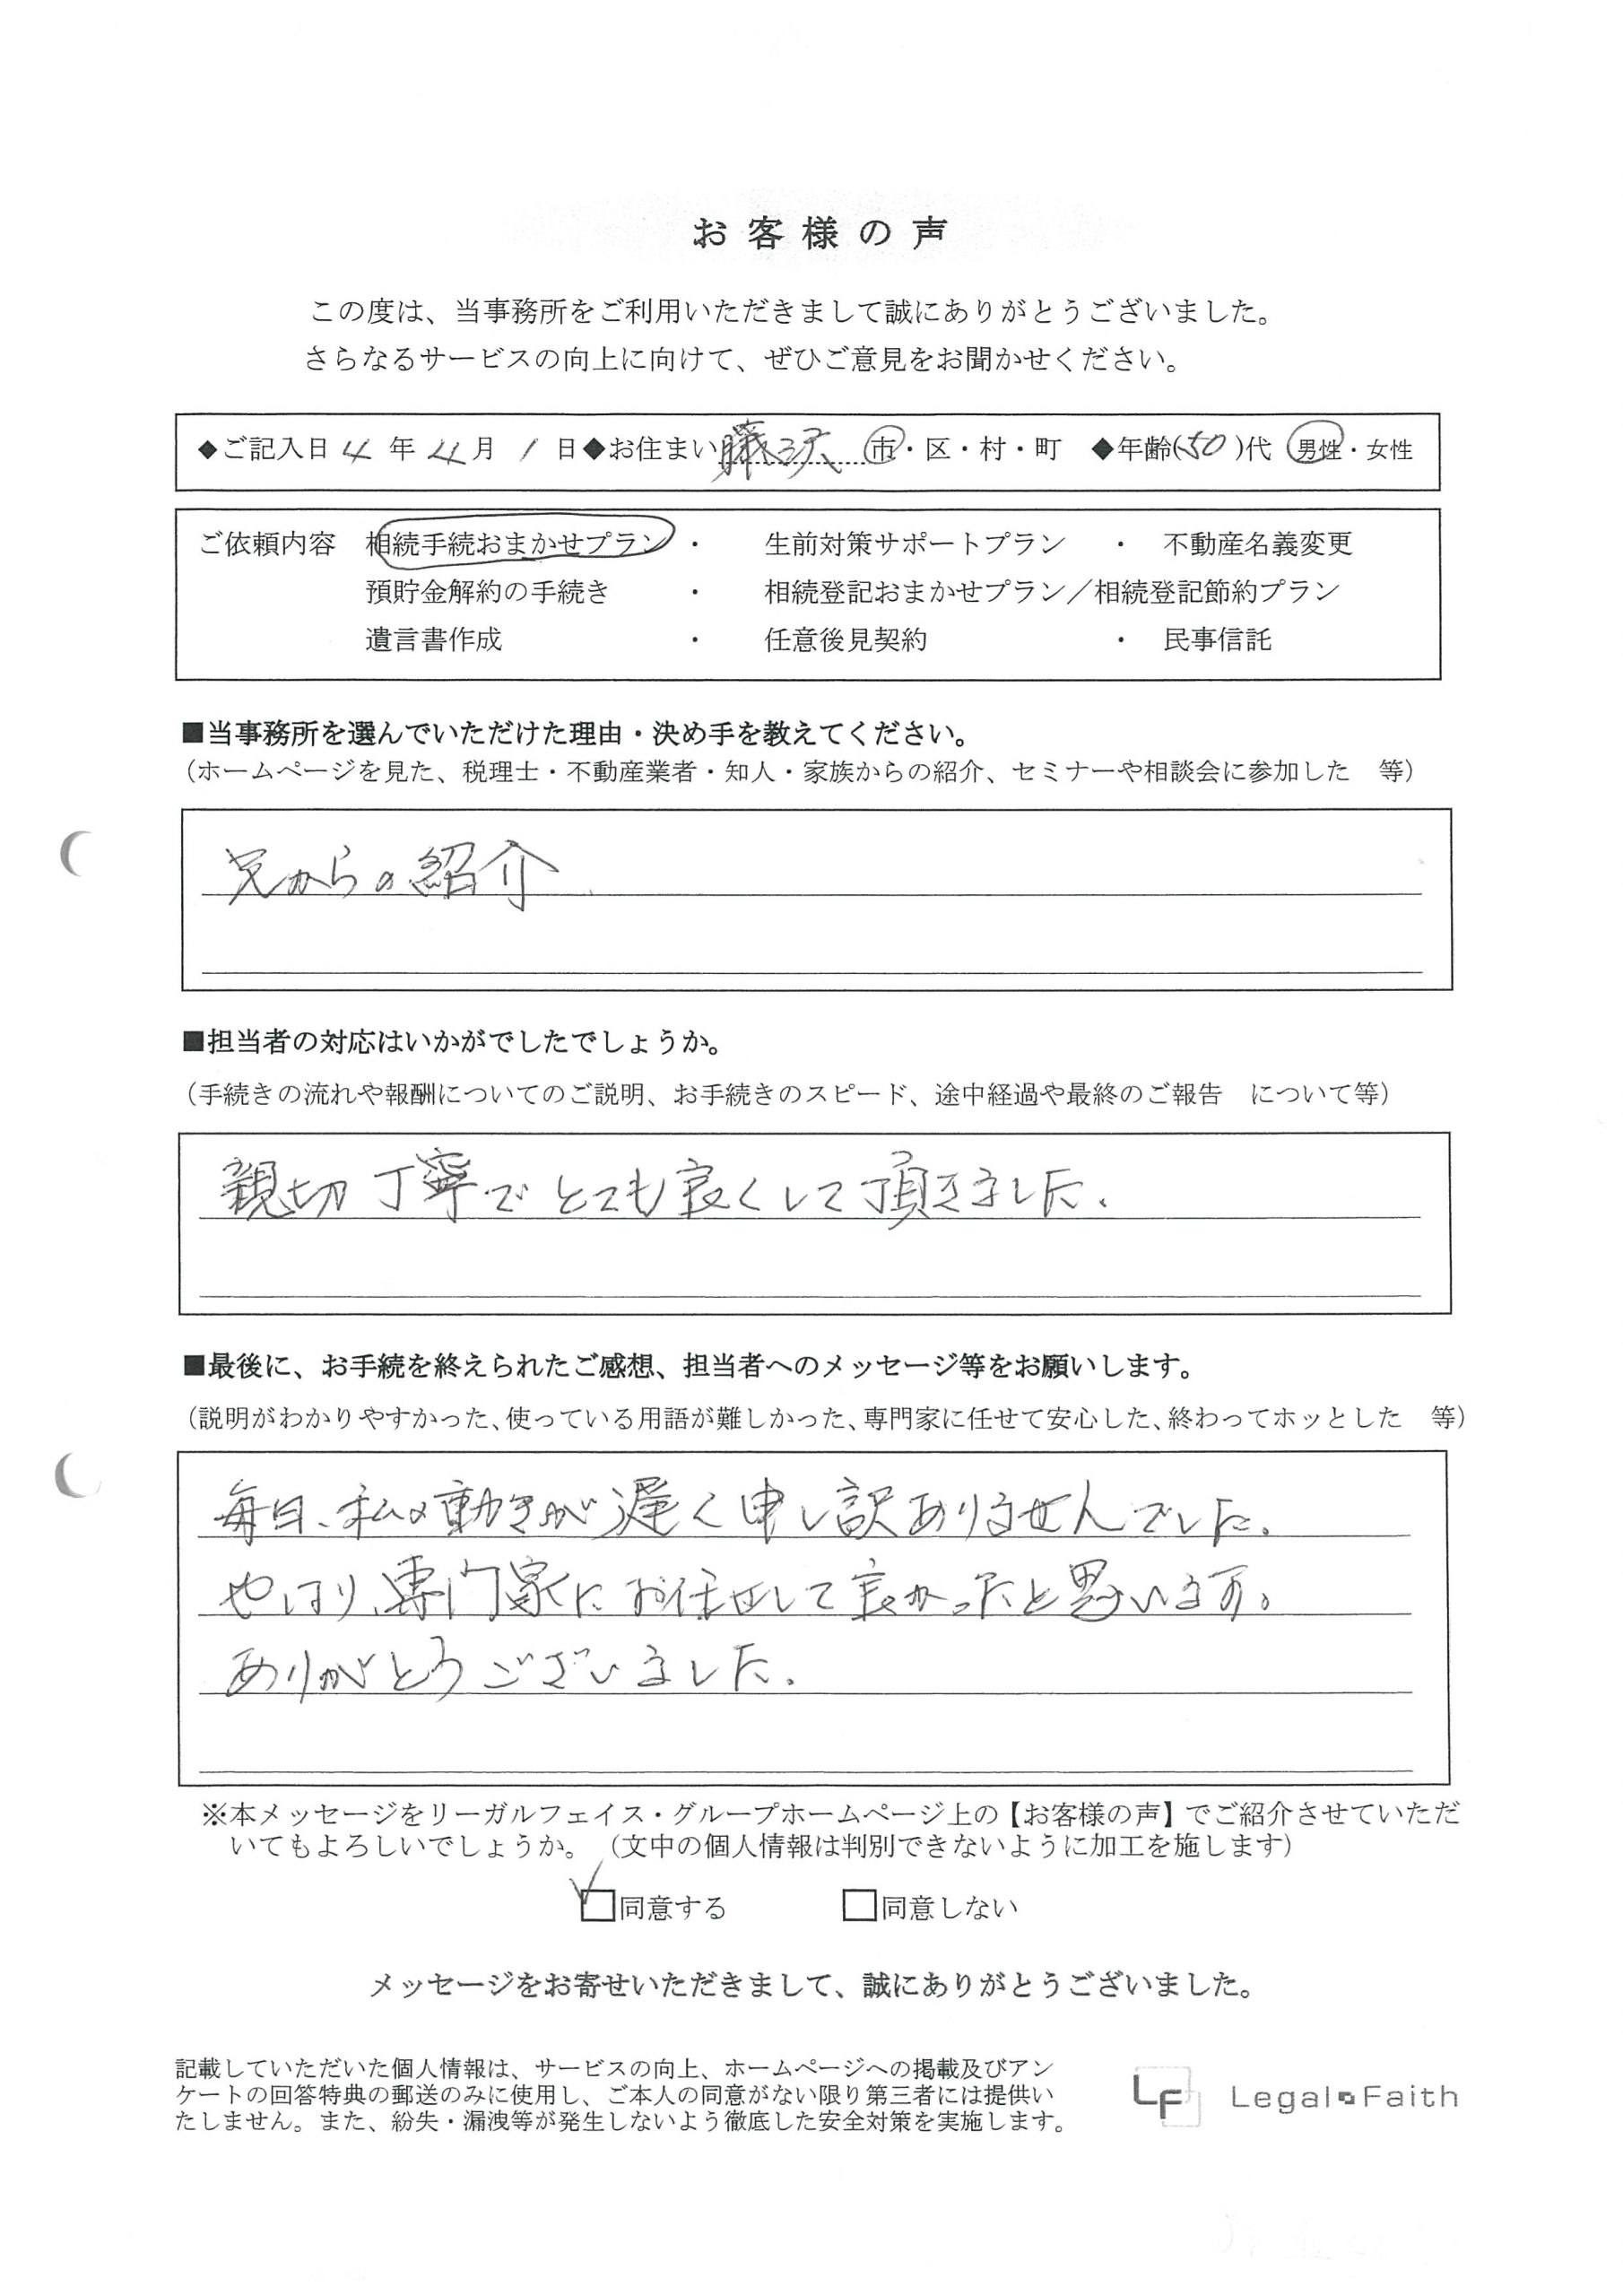 お客様の声
この度は、当事務所をご利用いただきまして誠にありがとうございました。
さらなるサービスの向上に向けて、ぜひご意見をお聞かせください。
◆ご記入日 4 年 4 月 1 日◆お住まい 藤沢 市・区・村・町 ◆年齢(50)代 男性・女性
ご依頼内容 相続手続おまかせプラン ・ 生前対策サポートプラン ・ 不動産名義変更
預貯金解約の手続き ・ 相続登記おまかせプラン／相続登記節約プラン
遺言書作成 ・ 任意後見契約 ・ 民事信託
■当事務所を選んでいただけた理由・決め手を教えてください。
（ホームページを見た、税理士・不動産業者・知人・家族からの紹介、セミナーや相談会に参加した 等）
兄からの紹介
■担当者の対応はいかがでしたでしょうか。
（手続きの流れや報酬についてのご説明、お手続きのスピード、途中経過や最終のご報告 について等）
親切丁寧でとても良くして頂きました.
■最後に、お手続を終えられたご感想、担当者へのメッセージ等をお願いします。
（説明がわかりやすかった、使っている用語が難しかった、専門家に任せて安心した、終わってホッとした 等）
毎日、私の動きが遅く申し訳ありませんでした.
やはり、専門家にお任せして良かったと思います。
ありがとうございました.
※本メッセージをリーガルフェイス・グループホームページ上の【お客様の声】でご紹介させていただ
いてもよろしいでしょうか。（文中の個人情報は判別できないように加工を施します）
☑同意する □同意しない
メッセージをお寄せいただきまして、誠にありがとうございました。
記載していただいた個人情報は、サービスの向上、ホームページへの掲載及びアン
ケートの回答特典の郵送のみに使用し、ご本人の同意がない限り第三者には提供い
たしません。また、紛失・漏洩等が発生しないよう徹底した安全対策を実施します。
LF Legal Faith